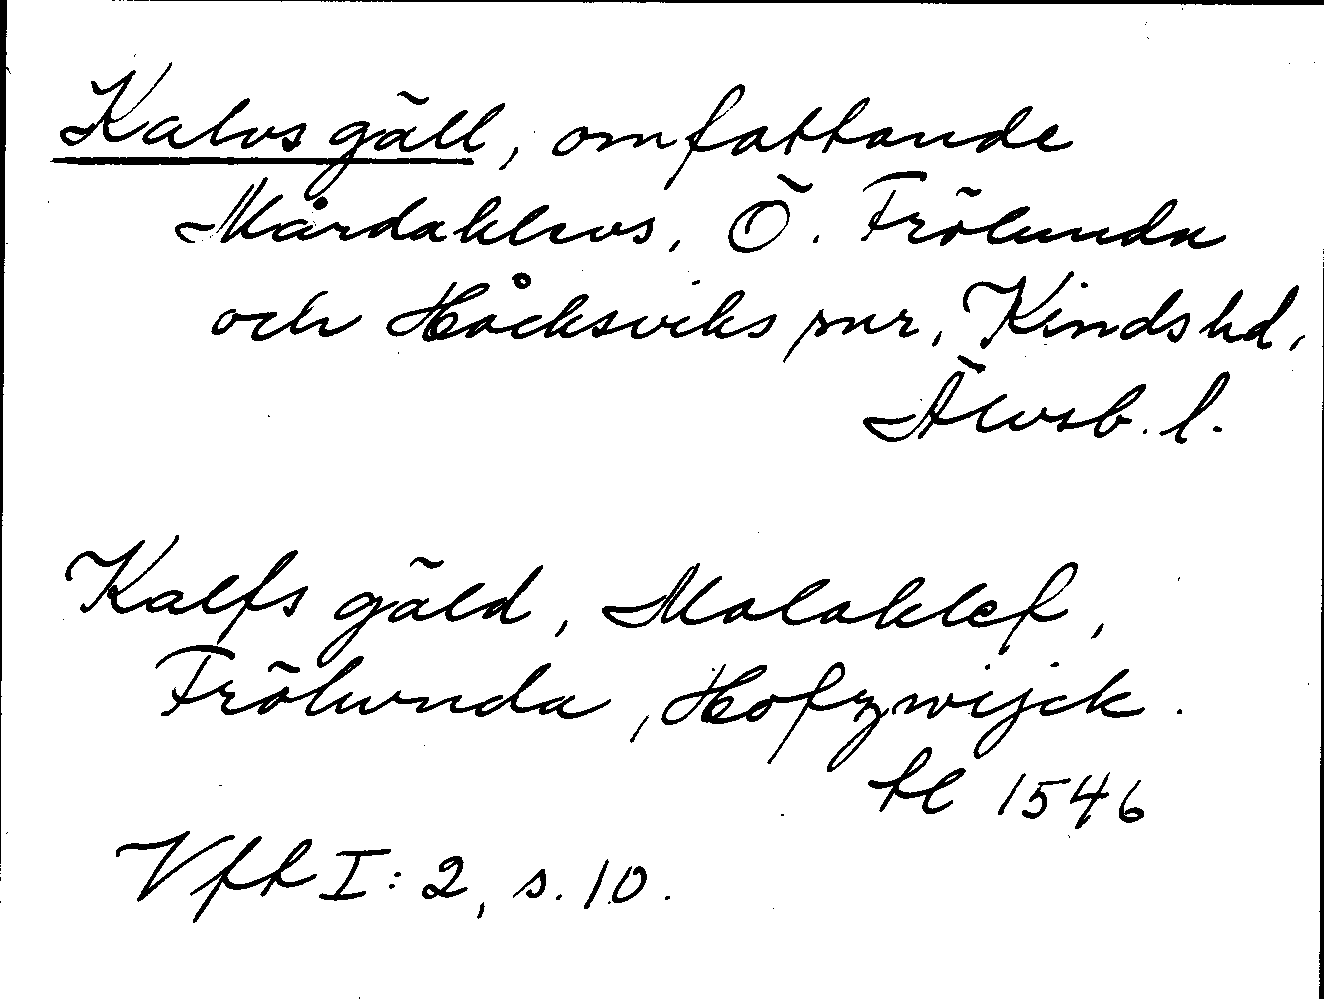 Kalvs gäll, omfattande
Mårdaklevs, Ö. Frölunda
och Håcksviks pnr, Kinds hd,
Älvsb. l.
Kalfs gäld, Malaklef,
Frölunda, Hofzwijck.
tl 1546
Vfft I:2, s. 10.